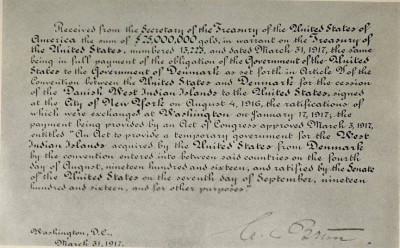 Received from the Secretary of the Treasury of the United States of
America the sum of $25,000,000 gold, in warrant on the Treasury of
the United States, numbered and dated March 31, 1917, the same
being in full payment of the obligation of the Government of the United
States to the Government of Denmark as set forth in Article of the
Convention between the United States and Denmark for the cession
of the Danish West Indian Islands to the United States, signed
at the City of New York on August 4, 1916, the ratifications of
which were exchanged at Washington on January 17, 1917; the
payment being provided by an Act of Congress approved March 3, 1917,
entitled "An Act to provide a temporary government for the West
Indian Islands acquired by the United States from Denmark
by the convention entered into between said countries on the fourth
day of August, nineteen hundred and sixteen, and ratified by the Senate
of the United States on the seventh day of September, nineteen
hundred and sixteen, and for other purposes."
Washington, D.C.,
March 31, 1917.